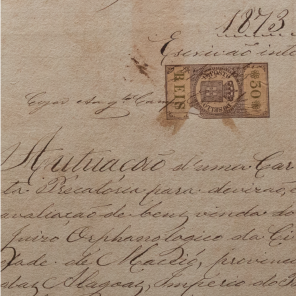 1873
Escrivão inte
REIS 50
Autuação d'uma Car
ta Precatoria para deverão,
avaliação de bens, venda do
Juizo Orphanologico da Ci
dade de Maceió, provin
das Alagoas, Imperio do